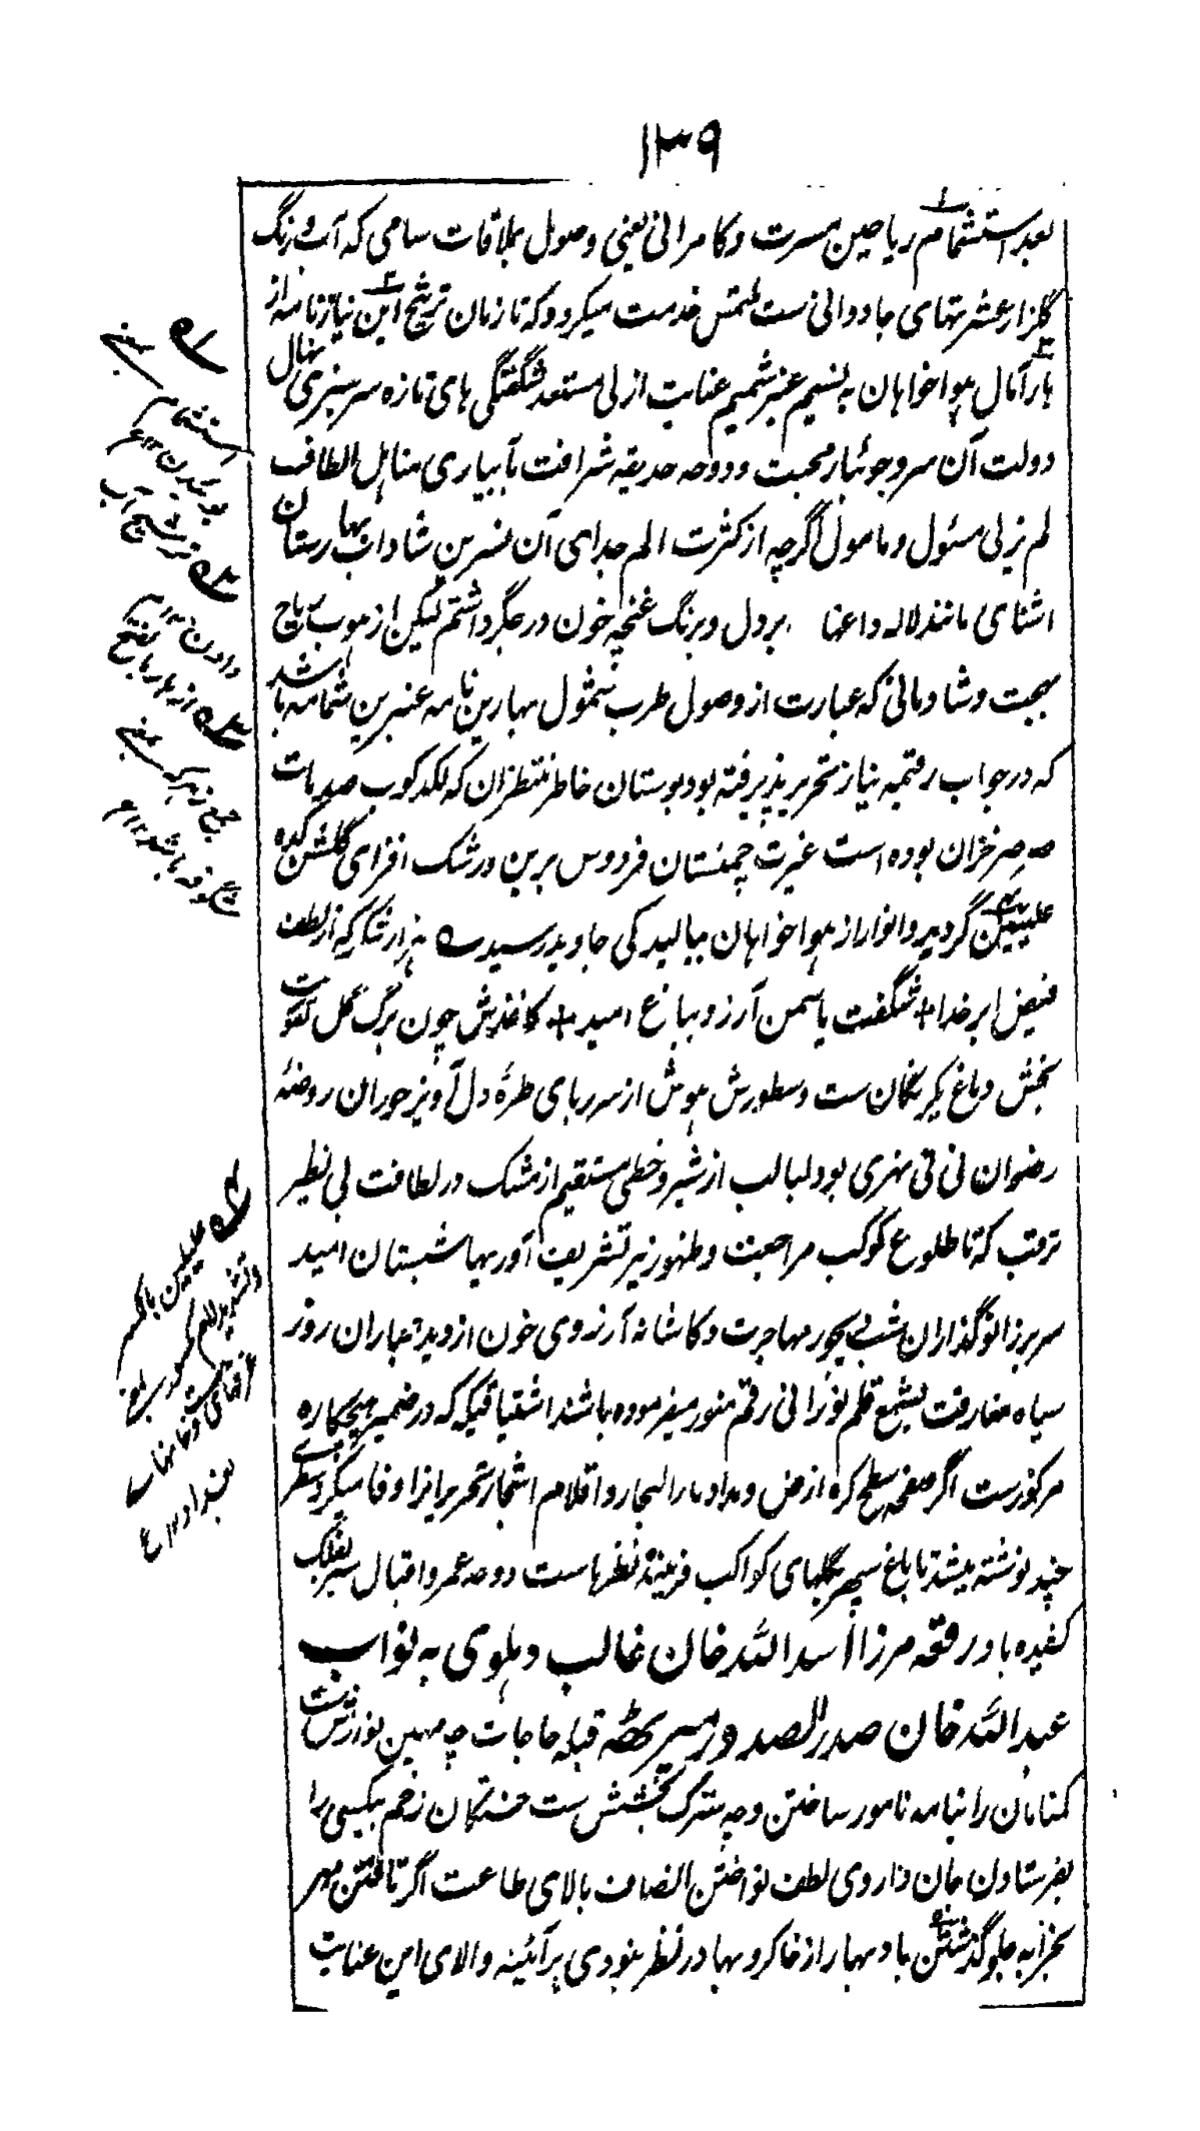 ۱۳۹
بعد استشمام ریاحین مسرت و کامرانی یعنی وصول بملاقات سامی که آب و رنگ
گلزار عشرتهای جاودانی ست ملتمس خدمت میگردد که تا زمان ترشیح این نیازنامه از
بار آمال هواخواهان به نسیم عنبر شمیم عنایت ازلی مستعد شگفتگی های تازه سرسبزی نهال
دولت آن سرو جوئبار محبت و دوحه حدیقه شرافت بآبیاری مناهل الطاف
لم یزلی مسئول و مامول اگرچه از کثرت الم جدای آن نسرین شاداب بهارستان
اشنای مانند لاله داغها بر دل و برنگ غنچه خون در جگر داشتم لیکن از هبوب ریاح
بهجت و شادمانی که عبارت از وصول طرب شمول بهارین نامه عنبرین شمامه باشد
که در جواب رقیمه نیاز تحریر پذیرفته بود بوستان خاطر منتظران که لکدکوب صدمات
صرصر خزان بوده است غیرت چمنستان فردوس برین و رشک افزای گلشن کده
علیین گردید و انوار از هواخواهان ببالیدگی جاوید رسید ه هزار شکر که از لطف
فیض ابر خدا + شگفت یاسمن آرزو بباغ امید + کاغذش چون برگ گل نکهت
بخش دماغ یکرنگان ست و سطورش هوش از سر ربای طرۀ دل آویز حوران روضۀ
رضوان نی نی نهری بود لبالب از شیر و خطی مستقیم از مشک در لطافت بی نظیر
ترقب که تا طلوع کوکب مراجعت و ظهور نیر تشریف آوریها شبستان امید
سر بزانو گذاران شب دیجور مهاجرت و کاشانه آرزوی خون از دیده باران روز
سیاه مفارقت بشمع قلم نورانی رقم منور میفرموده باشند اشتیاقیکه که در ضمیر هیچکاره
مرکوزست اگر صفحه سطح کره ارض و مداد ماء البحار و اقلام اشجار تحریر انرا وفا میکرد سطری
چند نوشته میشد تا باغ سپهر بگلهای کواکب فریبندۀ نظرهاست دوحه عمر و اقبال سر بفلک
کشیده باد رقعه مرزا اسد الله خان غالب دهلوی به نواب
عبد الله خان صدر الصدور میرٹھه قبله حاجات چه مهین نوازش ست
گمنامان را بنامه نامور ساختن و چه سترگ بخشش ست خستگان زخم بیکسی را
بفرستادن جان داروی لطف نواختن انصاف بالای طاعت اگر تافتن مهر
بخرابه جلو گذشتن باد بهار از خاکروبها در نظر بنودی هر آئینه والای این عنایت
استشمام
بوئیدن ۱۲ ع
ترشیح آب
دادن ۱۲
ازهار بالفتح
جمع زهر که بمعنی
شگوفه باشد ۱۲ ع
علیین بالکسر
و تشدید لام